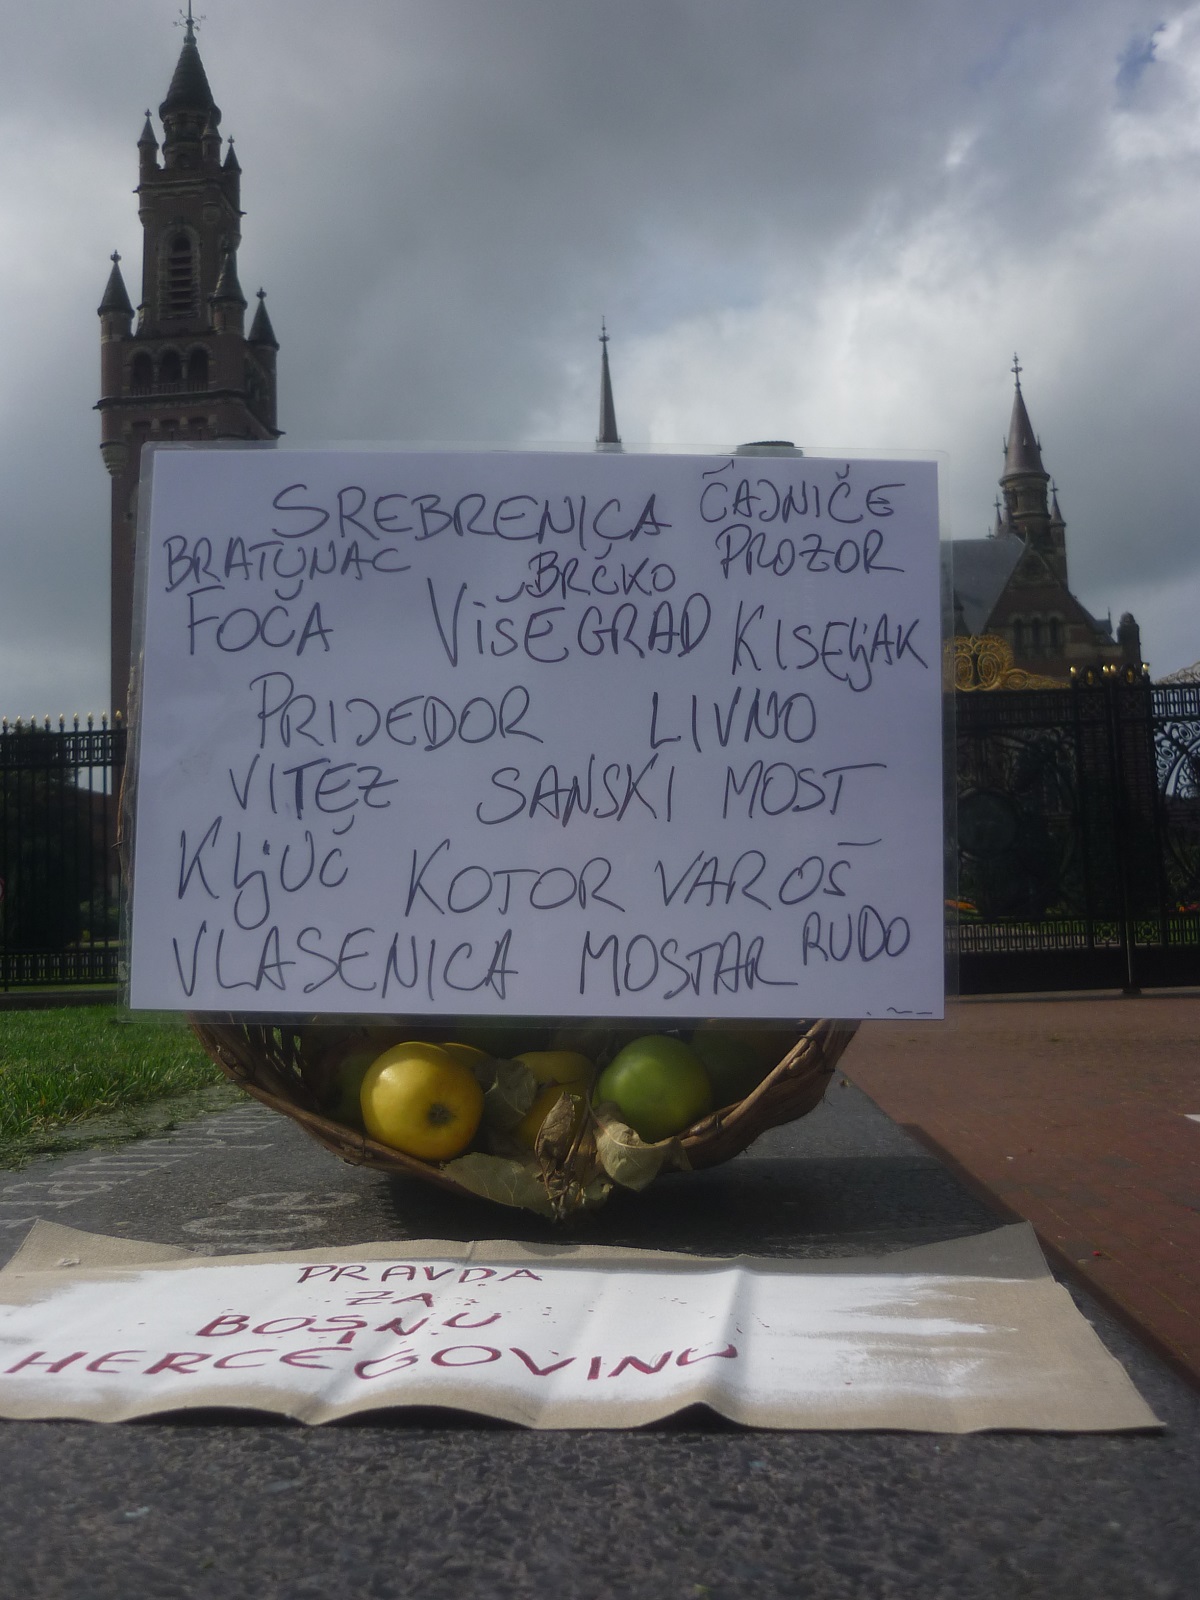 SREBRENICA ČAJNIČE
BRATUNAC BRČKO PROZOR
FOČA VišEGRAD KISEljAK
PRIJEDOR LIVNO
VITEZ SANSKI MOST
KljUČ KOTOR VAROŠ
VLASENICA MOSTAR RUDO
PRAVDA
ZA
BOSNU
I
HERCEGOVINU